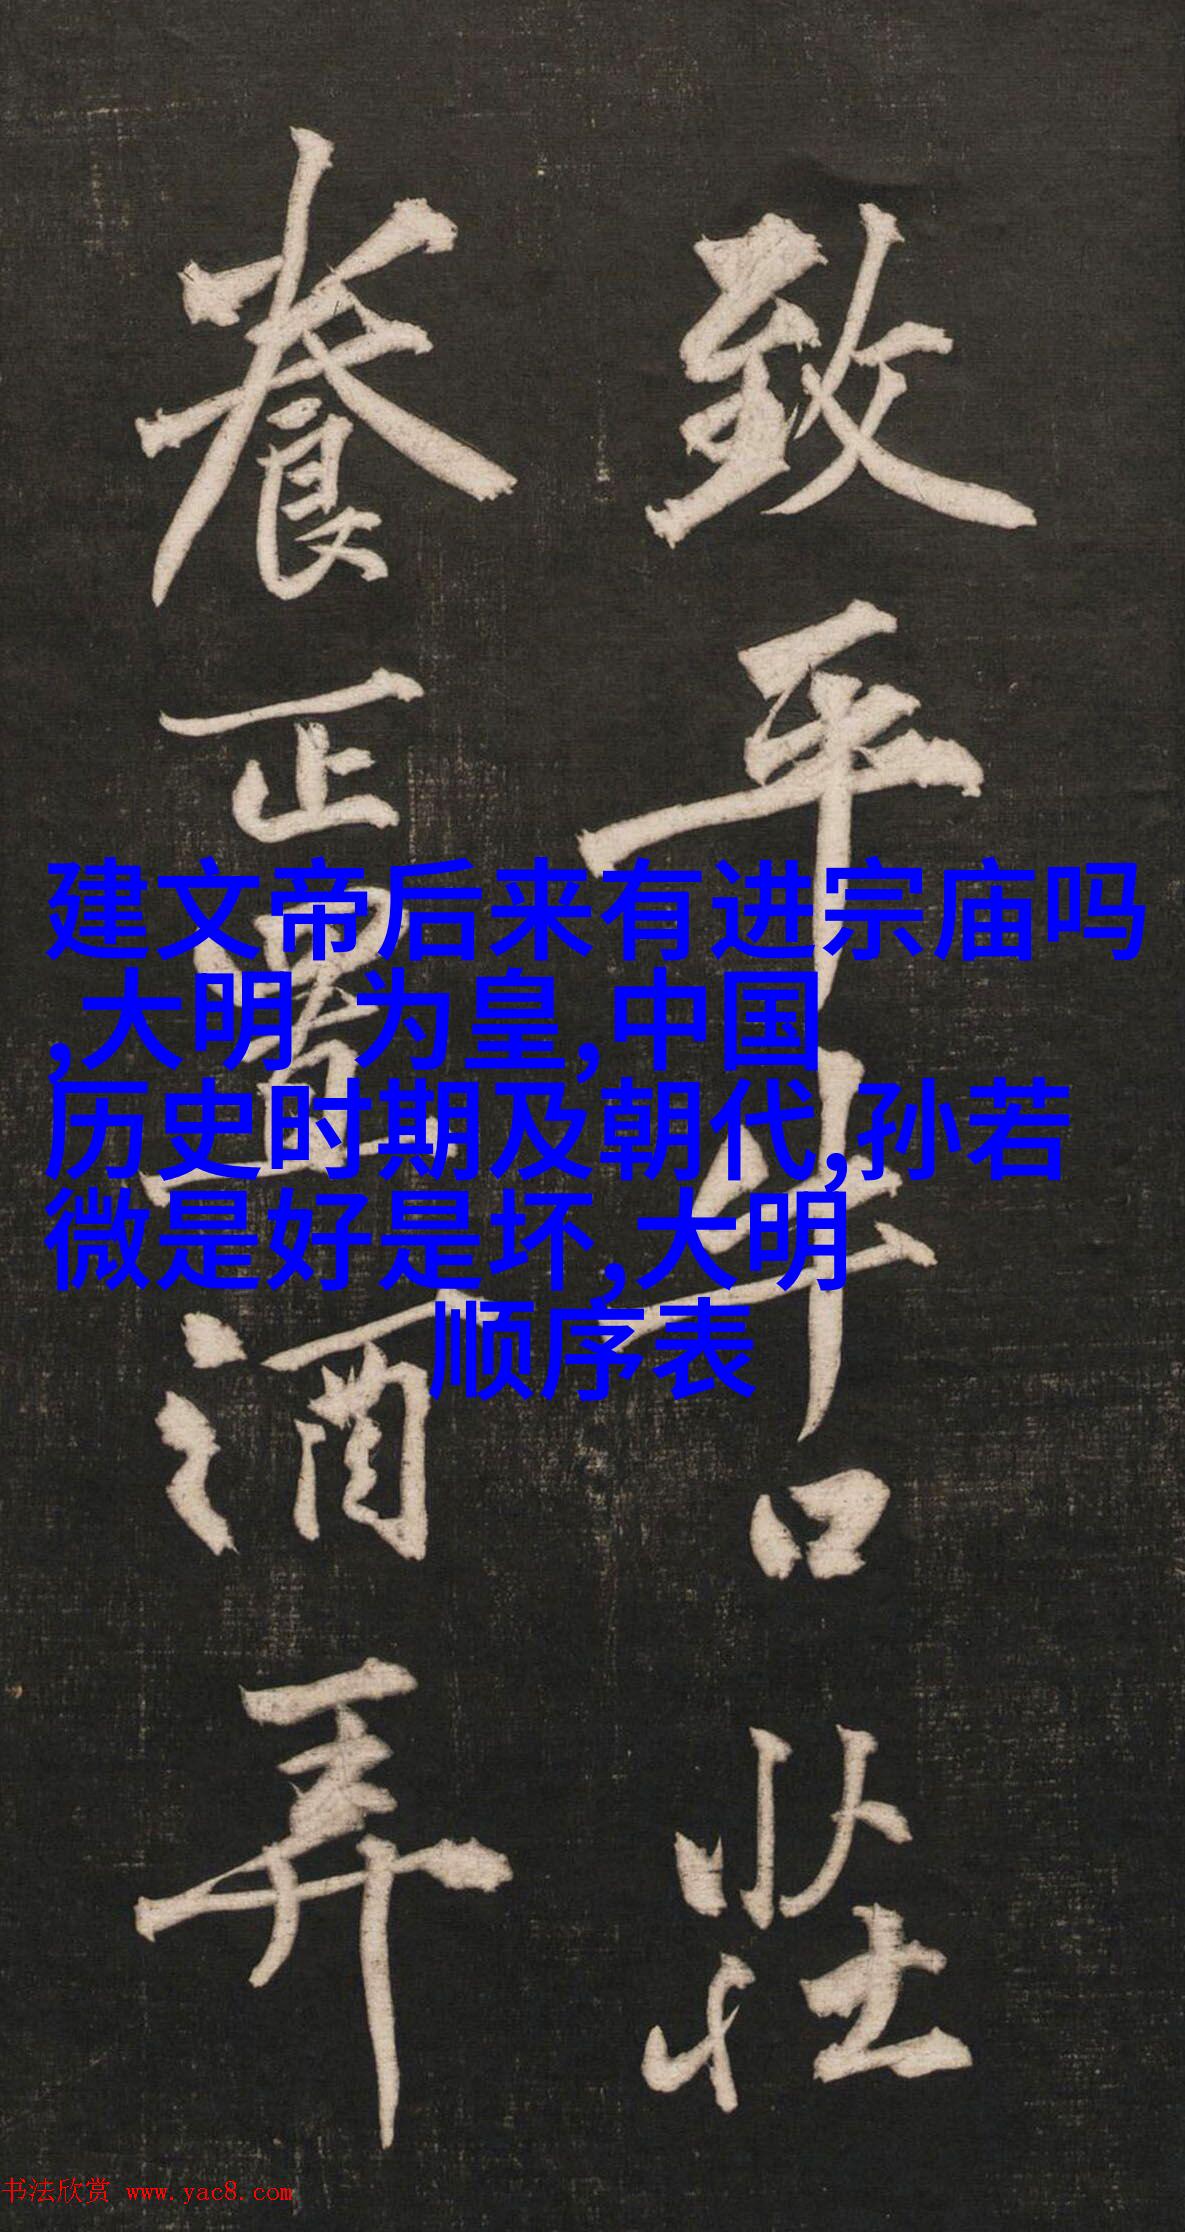 致平年台壯
養正置酒弄
建文帝后来有进宗庙吗
,大明 为皇,中国
历史时期及朝代,孙若
微是好是坏,大明
顺序表
书法欣赏 www.yac8.com